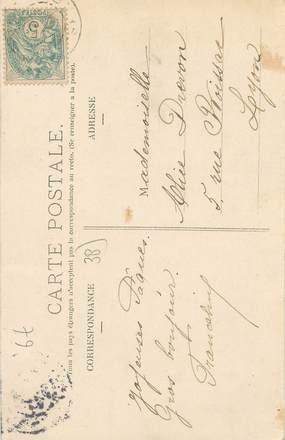 CARTE POSTALE.
Tous les pays étrangers n'acceptent pas la correspondance au recto. (Se renseigner à la poste).
CORRESPONDANCE
ADRESSE
38
6t
Joyeuses Pâques.
Gros bonjour.
Mademoiselle
5 rue Boissac
Lyon
5
POSTES